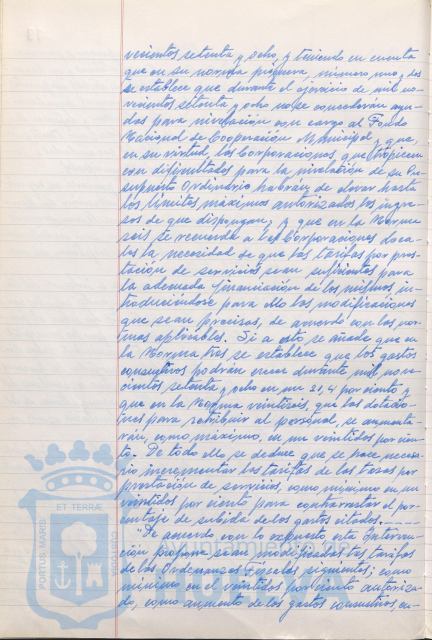 vecientos setenta y ocho, y teniendo en cuenta
que en su norma primera, número uno, dos
se establece que durante el ejercicio de mil no-
vecientos setenta y ocho no se concederán ayu-
das para nivelación con cargo al Fondo
Nacional de Cooperación Municipal, que,
en su virtud, las Corporaciones, que tropiecen
con dificultades para la nivelación de su Pre-
supuesto Ordinario habrán de elevar hasta
los límites máximos autorizados los ingre-
sos de que dispongan, y que en la Norma
seis se recuerda a las Corporaciones Loca-
les la necesidad de que las tarifas por pres-
tación de servicios sean suficientes para
la adecuada financiación de los mismos in-
troduciéndose para ello las modificaciones
que sean precisas, de acuerdo con las nor-
mas aplicables. Si a esto se añade que en
la Norma tres se establece que los gastos
consuntivos podrán crecer durante mil nove-
cientos setenta y ocho en un 21,4 por ciento y
que en la Norma veintiséis, que las dotacio-
nes para retribuir al personal, se aumenta-
rán, como máximo, en un veintidós por cien-
to. De todo ello se deduce que se hace necesa-
rio incrementar las tarifas de las tasas por
prestación de servicios, como mínimo en un
veintidós por ciento para contrarrestar el por-
centaje de subida de los gastos citados.
De acuerdo con lo expuesto esta Interven-
ción propone sean modificadas las tarifas
de las Ordenanzas Fiscales siguientes; como
mínimo en el veintidós por ciento autoriza-
do, como aumento de los gastos consuntivos, en-
PORTUS MARIS
ET TERRÆ
CUSTODIA
HUELVA